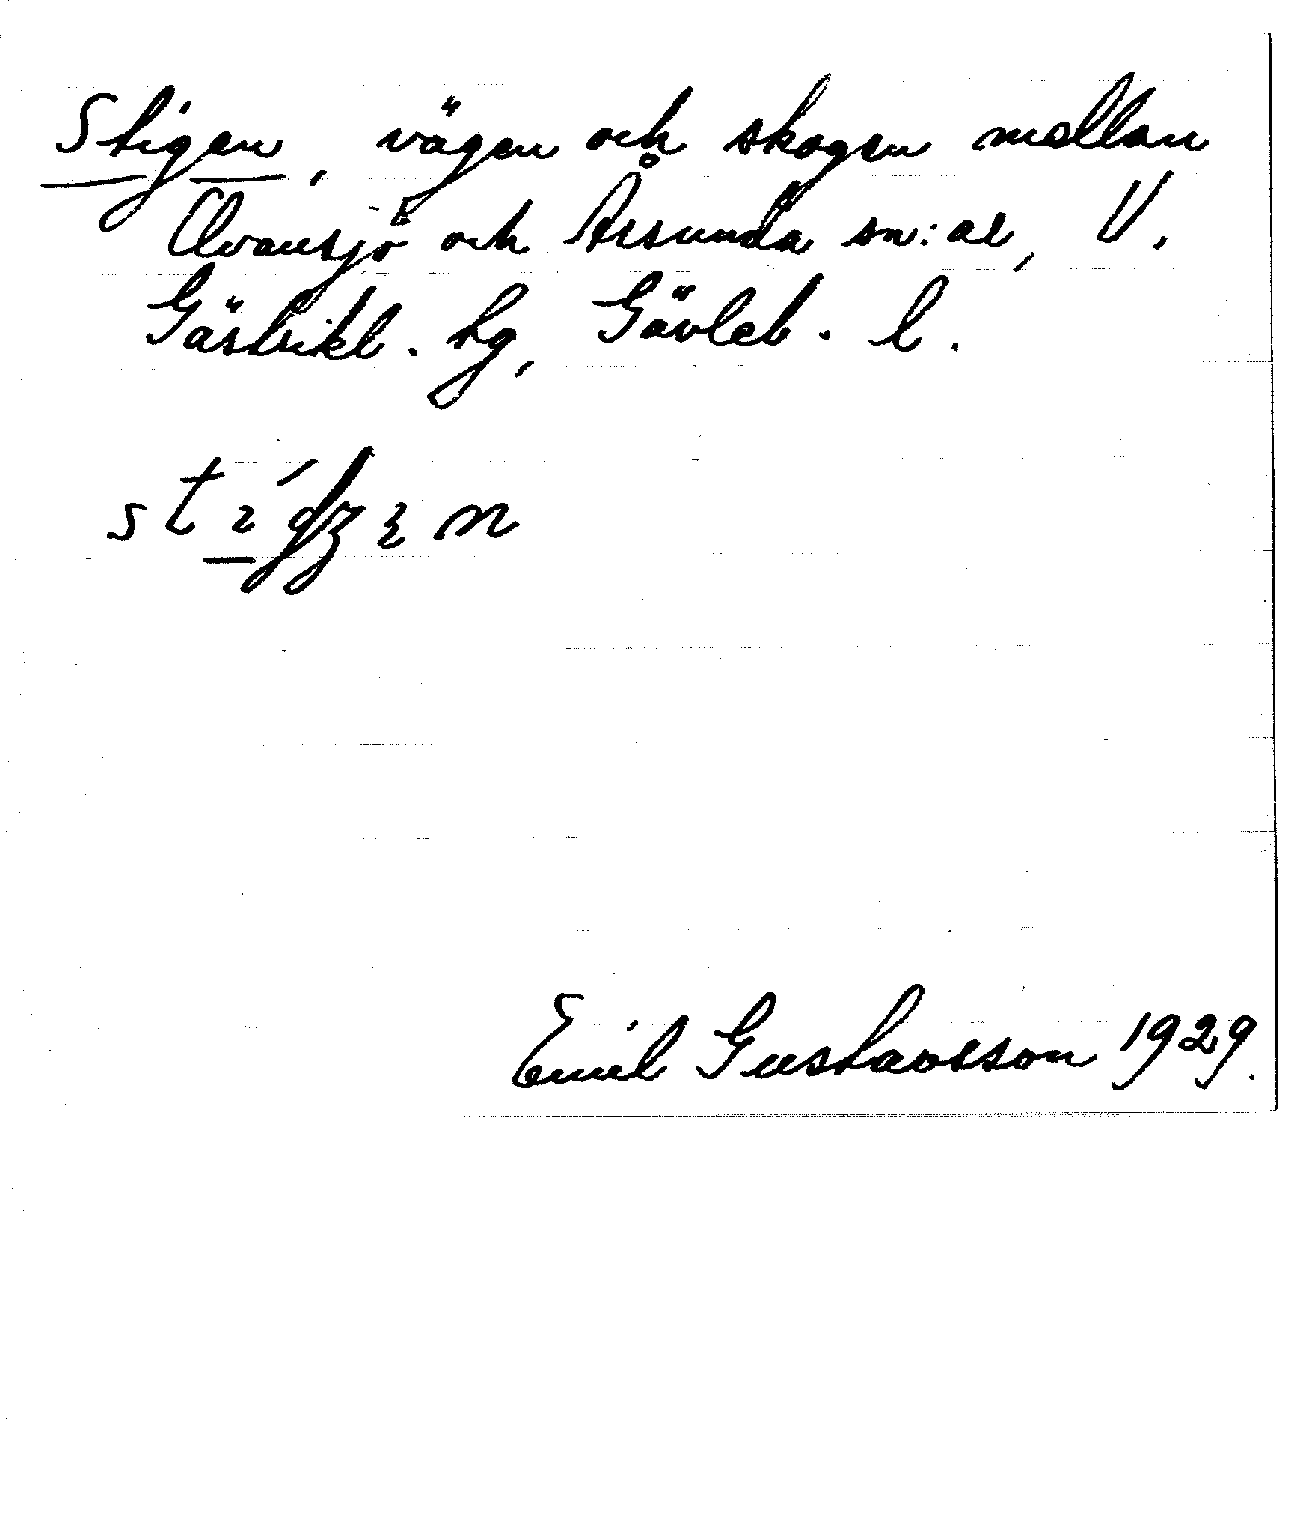 Stigen, vägen och skogen mellan
Ovansjö och Årsunda sn:ar, V.
Gästrikl. tg, Gävleb. l.
Emil Gustavsson 1929.